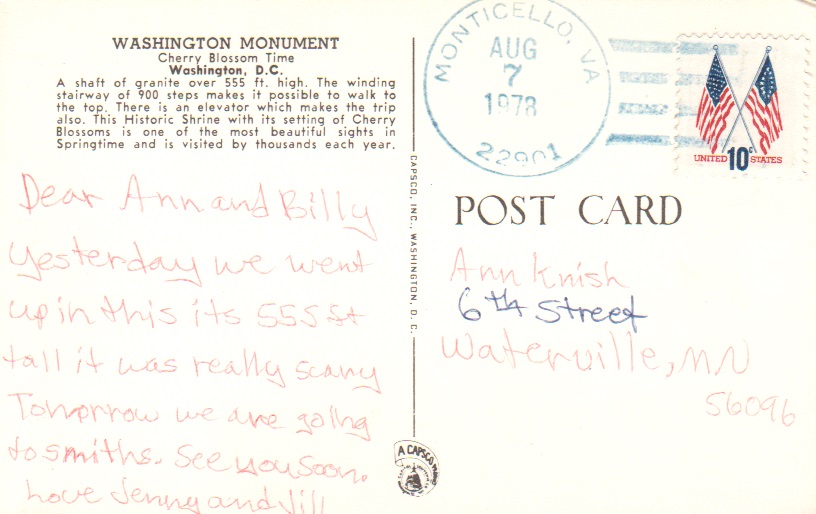 WASHINGTON MONUMENT
Cherry Blossom Time
Washington, D.C.
A shaft of granite over 555 ft. high. The winding
stairway of 900 steps makes it possible to walk to
the top. There is an elevator which makes the trip
also. This Historic Shrine with its setting of Cherry
Blossoms is one of the most beautiful sights in
Springtime and is visited by thousands each year.
Dear Ann and Billy
Yesterday we went
up in this its 555 ft
tall it was really scary
Tomorrow we are going
to smiths. See you soon.
Love Jenny and Jill
CAPSCO, INC., WASHINGTON, D. C.
A CAPSCO
MONTICELLO, VA
AUG
7
1978
22901
UNITED 10c STATES
POST CARD
Ann Knish
6th Street
Waterville, MN
56096